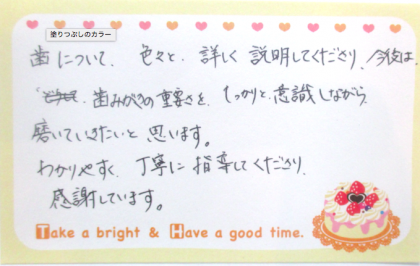 塗りつぶしのカラー
歯について、色々と、詳しく説明してくださり、今後は、
歯みがきの重要さを、しっかりと意識しながら
磨いていきたいと思います。
わかりやすく、丁寧に指導してくださり、
感謝しています。
Take a bright & Have a good time.